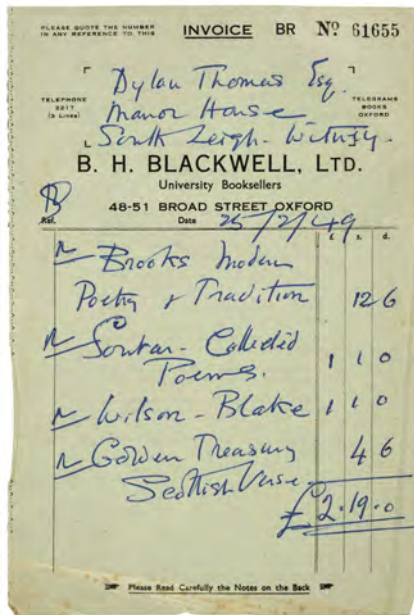 PLEASE QUOTE THE NUMBER
IN ANY REFERENCE TO THIS
INVOICE BR No 61655
Dylan Thomas Esq.
TELEPHONE
2217
(3 Lines)
Manor House
TELEGRAMS
BOOKS
OXFORD
South Leigh. Witney.
B. H. BLACKWELL, LTD.
University Booksellers
48-51 BROAD STREET OXFORD
Ref. Date 25/2/49
£ s. d.
N Brooks Modern
Poetry & Tradition 12 6
N Soutar - Collected
Poems. 1 1 0
N Wilson - Blake 1 1 0
N Golden Treasury 4 6
Scottish Verse
£2.19.0
Please Read Carefully the Notes on the Back